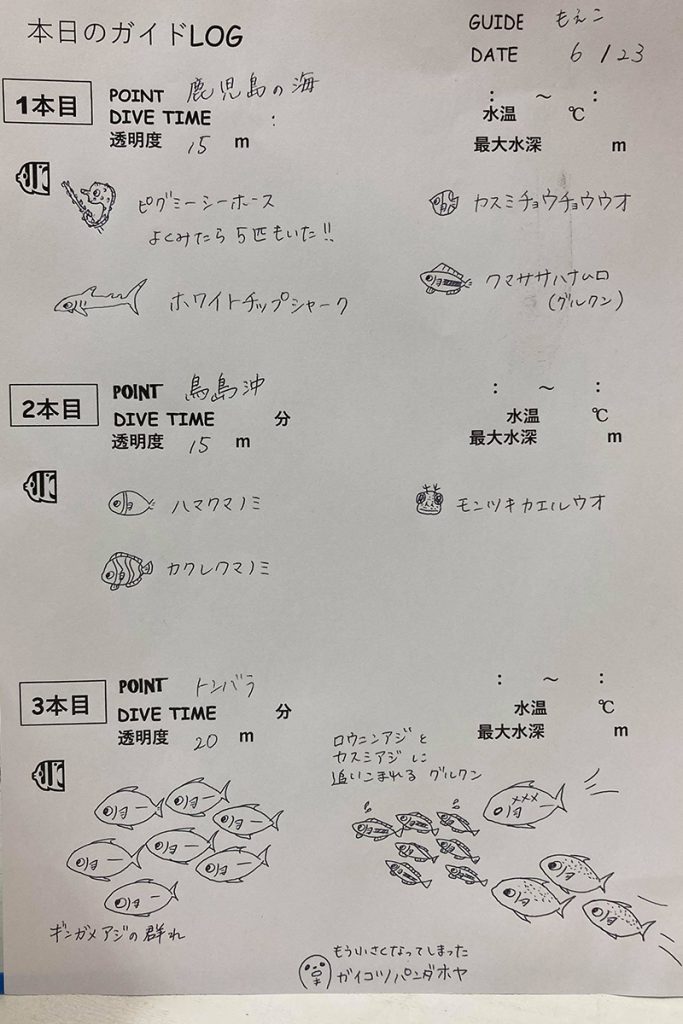 本日のガイドLOG
GUIDE もえこ
DATE 6/23
1本目
POINT 鹿児島の海
DIVE TIME :
透明度 15 m
: ～ :
水温 ℃
最大水深 m
ピグミーシーホース
よくみたら5匹もいた!!
カスミチョウチョウウオ
ホワイトチップシャーク
クマササハナムロ
(グルクン)
2本目
POINT 鳥島沖
DIVE TIME 分
透明度 15 m
: ～ :
水温 ℃
最大水深 m
ハマクマノミ
モンツキカエルウオ
カクレクマノミ
3本目
POINT トンバラ
DIVE TIME 分
透明度 20 m
: ～ :
水温 ℃
最大水深 m
ロウニンアジと
カスミアジに
追いこまれる グルクン
ギンガメアジの群れ
もういさくなってしまった
ガイコツパンダホヤ